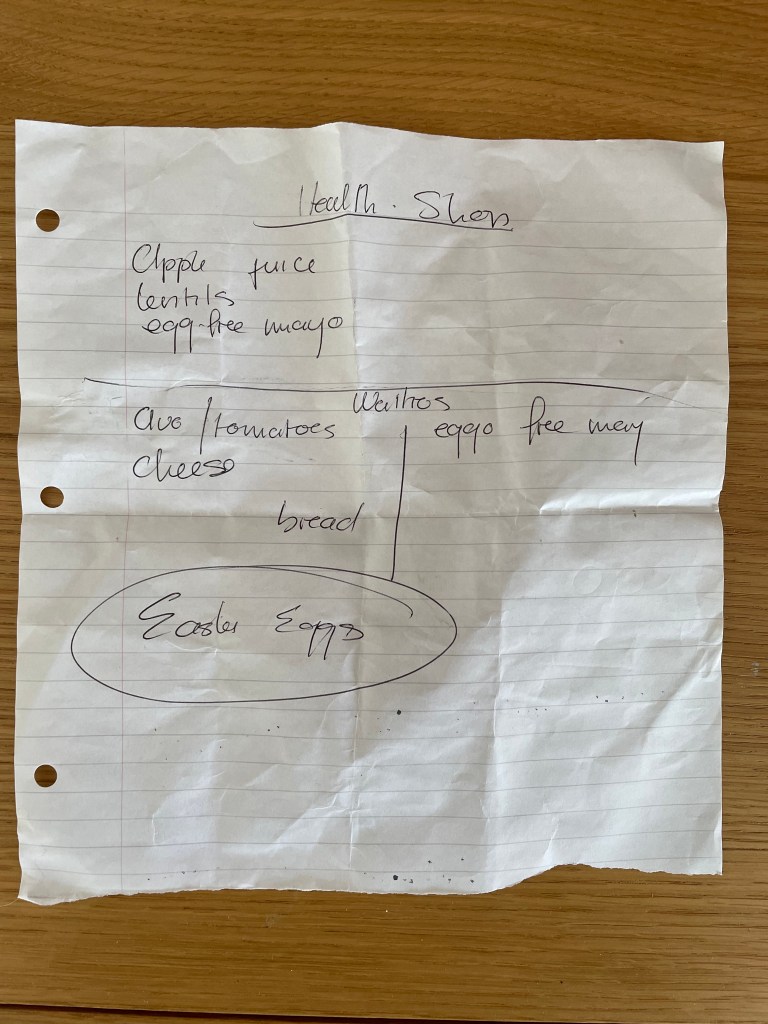 Health. Shop
Apple juice
lentils
egg-free mayo
Waitros
avo / tomatoes
eggo free may
cheese
bread
Easter Eggs